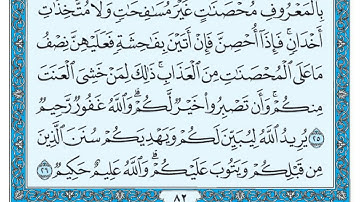 بِالْمَعْرُوفِ مُحْصَنَاتٍ غَيْرَ مُسَافِحَاتٍ وَلَا مُتَّخِذَاتِ
أَخْدَانٍ ۚ فَإِذَا أُحْصِنَّ فَإِنْ أَتَيْنَ بِفَاحِشَةٍ فَعَلَيْهِنَّ نِصْفُ
مَا عَلَى الْمُحْصَنَاتِ مِنَ الْعَذَابِ ۚ ذَٰلِكَ لِمَنْ خَشِيَ الْعَنَتَ
مِنكُمْ ۚ وَأَن تَصْبِرُوا خَيْرٌ لَّكُمْ ۗ وَاللَّهُ غَفُورٌ رَّحِيمٌ
٢٥ يُرِيدُ اللَّهُ لِيُبَيِّنَ لَكُمْ وَيَهْدِيَكُمْ سُنَنَ الَّذِينَ
مِن قَبْلِكُمْ وَيَتُوبَ عَلَيْكُمْ ۗ وَاللَّهُ عَلِيمٌ حَكِيمٌ ٢٦
٨٢